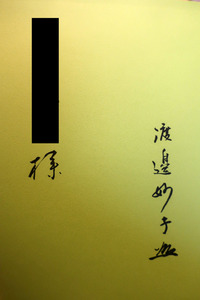 様
渡邉妙子